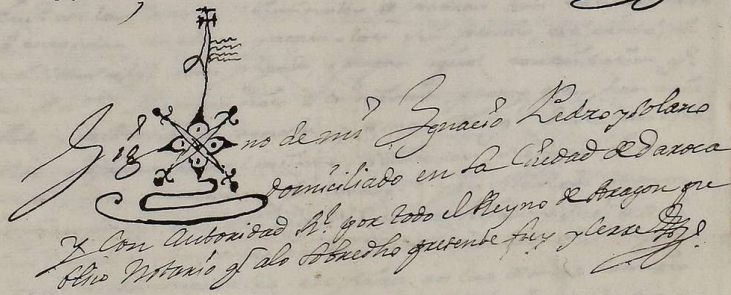 Sig no de mi Ygnacio Pedro y Solano
domiciliado en la Ciudad de Daroca
y Con Autoridad Rl. por todo el Reyno de Aragon pu
blico Notario q alo sobredho presente fuy y cerre